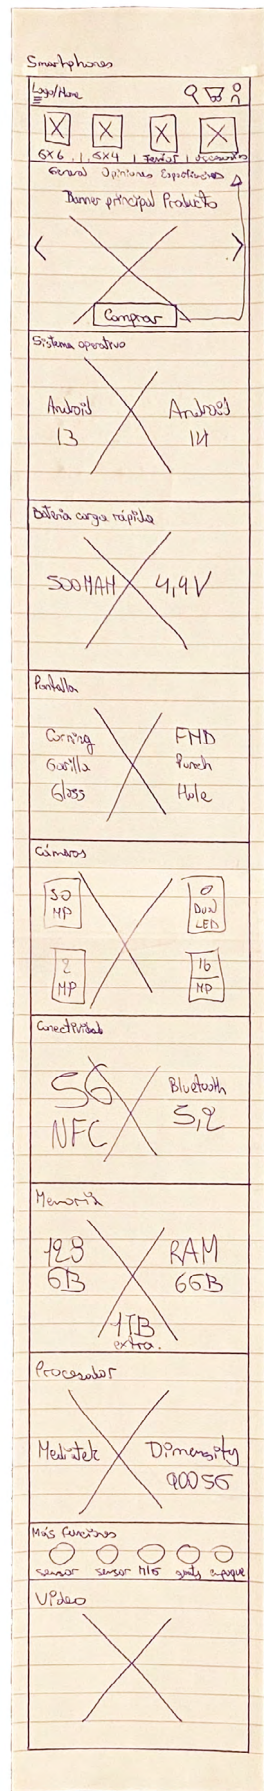 Smartphones
Logo/Home
6X6 | 5X4 | |
General Opiniones Especificaciones
Banner principal Producto
Comprar
Sistema operativo
Android Android
13 14
Batería carga rápida
500 MAH 4,4V
Pantalla
Corning FHD
Gorilla Punch
Glass Hole
Cámaras
50 MP
Dual LED
2 MP
16 MP
Conectividad
5G Bluetooth
NFC 5,2
Memoria
128 RAM
GB 6GB
1TB
extra.
Procesador
Mediatek Dimensity
900 5G
Más funciones
sensor sensor enfoque
Vídeo